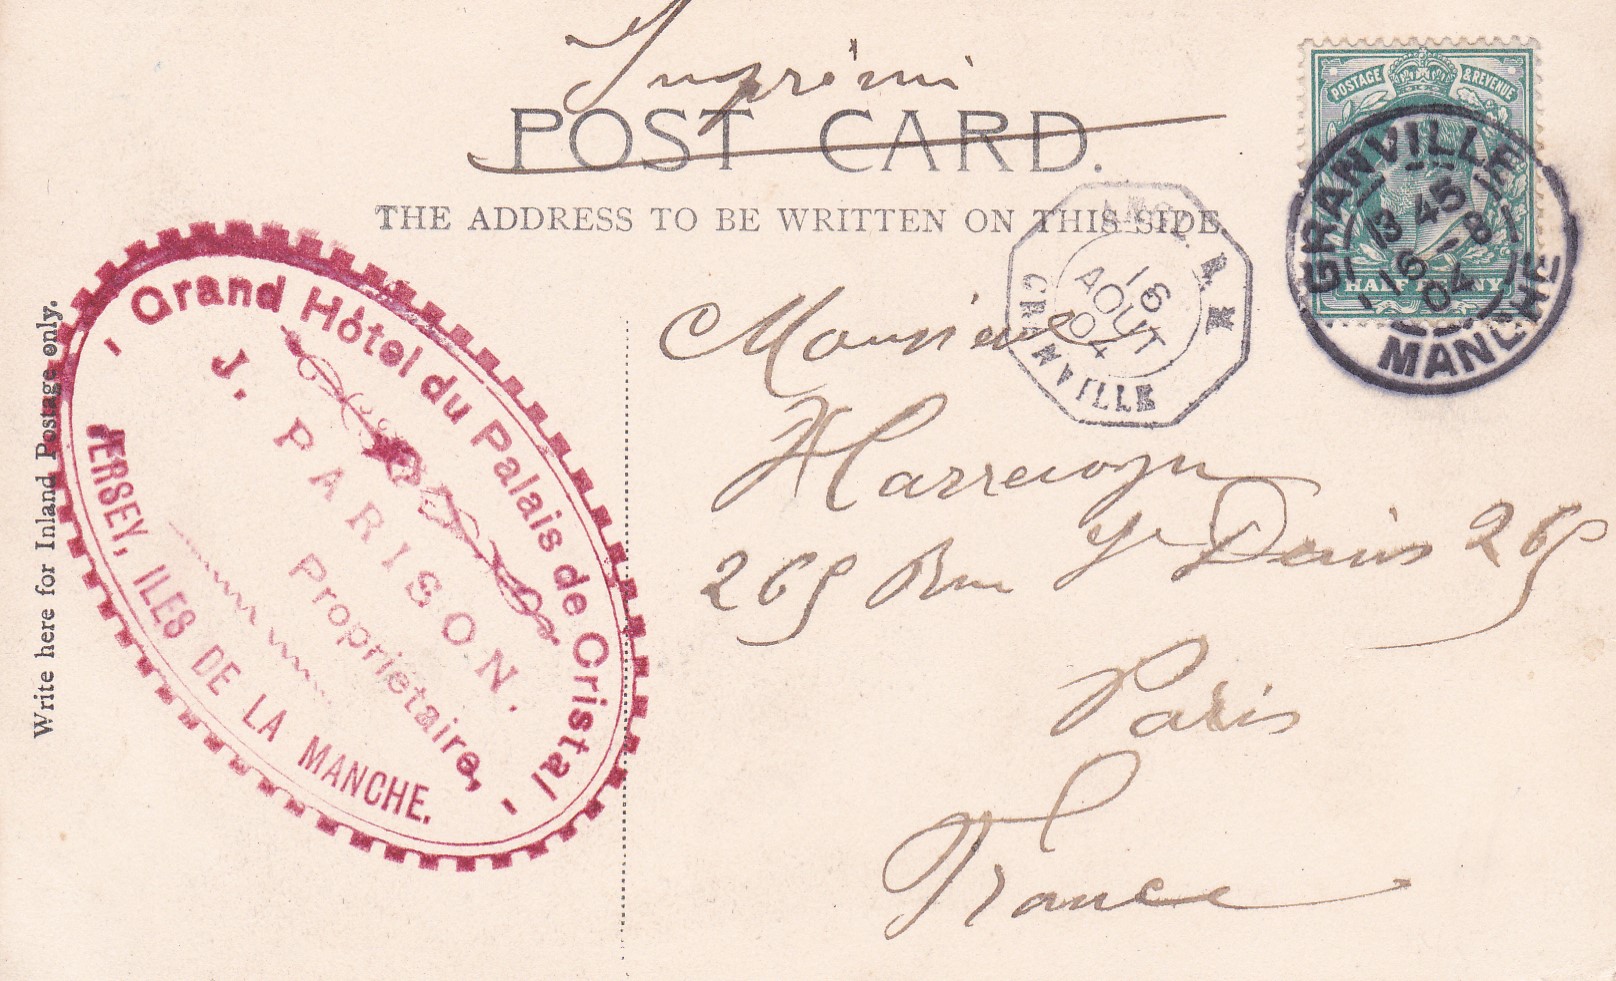 Imprimé
POST CARD.
THE ADDRESS TO BE WRITTEN ON THIS SIDE
POSTAGE & REVENUE
HALF PENNY
GRANVILLE
13 45
16 - 8
04
MANCHE
16
AOUT
04
GRANVILLE
Write here for Inland Postage only.
- Grand Hôtel du Palais de Cristal -
J. PARISON.
Propriétaire,
JERSEY, ILES DE LA MANCHE.
Monsieur
269 Rue St Denis 269
Paris
France